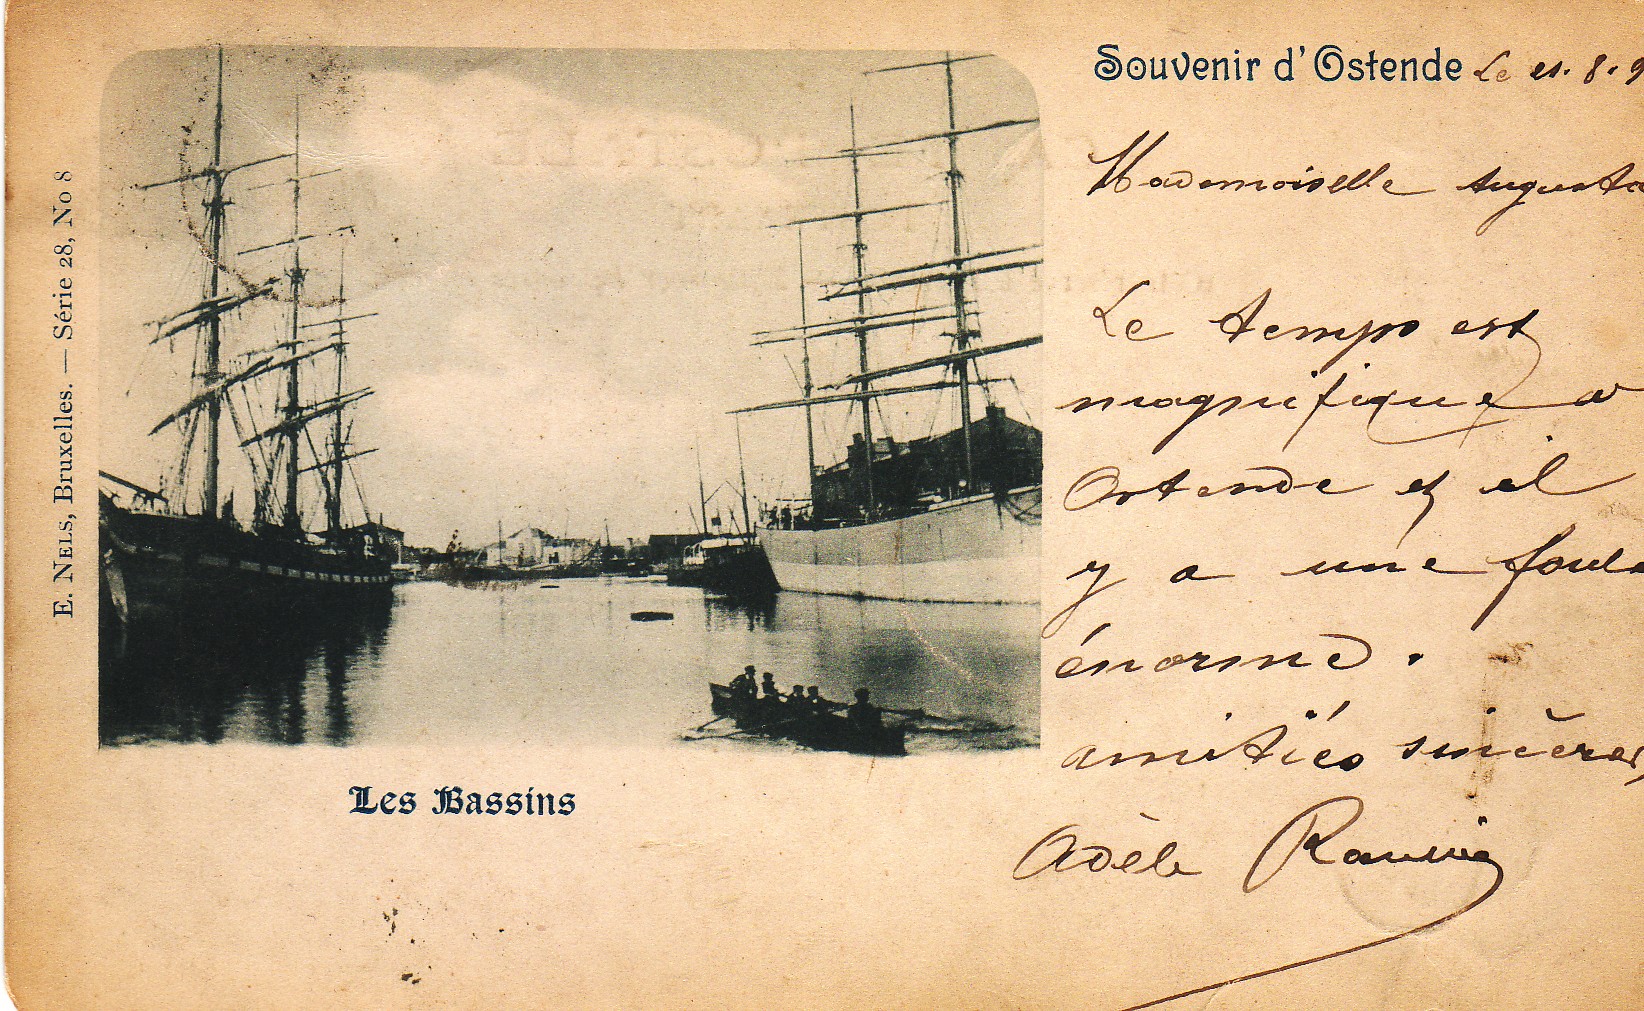 Souvenir d'Ostende Le 21.8.9
Mademoiselle Augusta
Le temps est
magnifique a
Ostende et il
y a une foule
énorme.
amitiés sincères,
Adèle
Les Bassins
E. NELS, Bruxelles. — Série 28, No 8